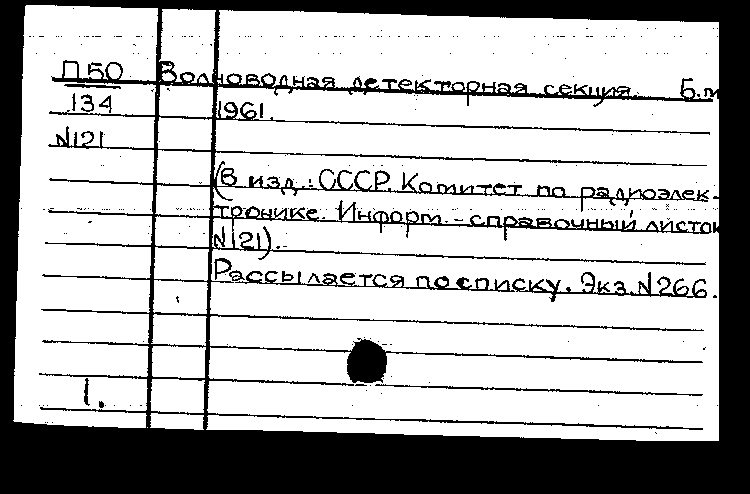 П50 Волноводная детекторная секция. Б.м
134 1961.
N121
(В изд.: СССР. Комитет по радиоэлек-
тронике. Информ.-справочный листок
N121).
Рассылается по списку. Экз. N266.
1.